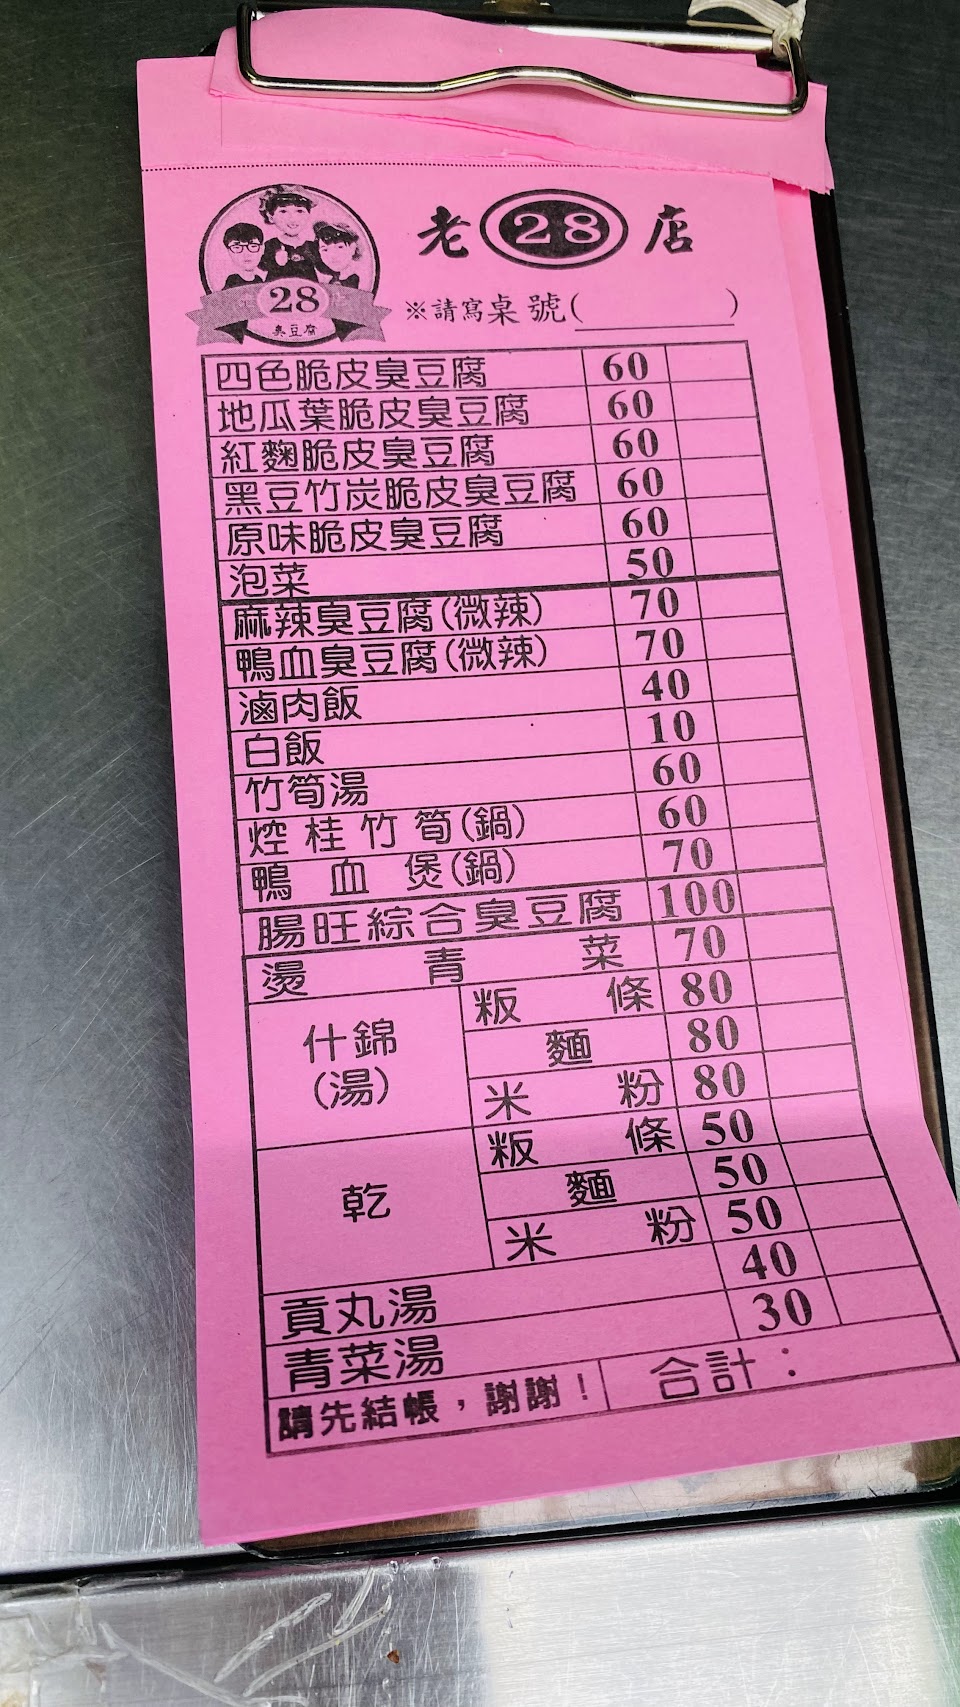 老 28 店
28
臭豆腐
※請寫桌號( )
四色脆皮臭豆腐 60
地瓜葉脆皮臭豆腐 60
紅麴脆皮臭豆腐 60
黑豆竹炭脆皮臭豆腐 60
原味脆皮臭豆腐 60
泡菜 50
麻辣臭豆腐(微辣) 70
鴨血臭豆腐(微辣) 70
滷肉飯 40
白飯 10
竹筍湯 60
焢桂竹筍(鍋) 60
鴨血煲(鍋) 70
腸旺綜合臭豆腐 100
燙青菜 70
什錦(湯)
粄條 80
麵 80
米粉 80
乾
粄條 50
麵 50
米粉 50
貢丸湯 40
青菜湯 30
請先結帳，謝謝！ 合計：